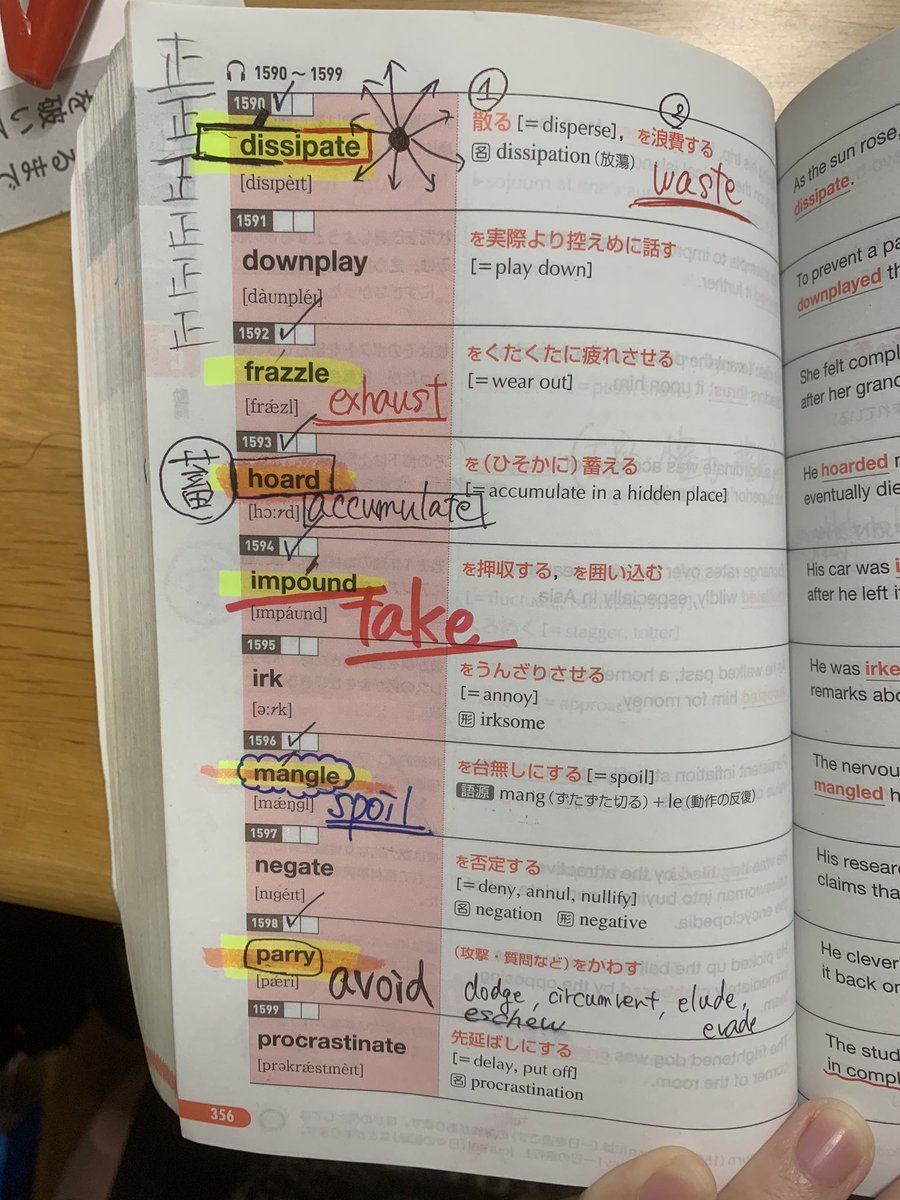 を破い
るまで
正
正
正
正
正
正
1590～1599
1590
dissipate
[dísɪpèɪt]
①
②
散る [＝disperse]，を浪費する
名 dissipation（放蕩）
waste
1591
downplay
[dàunpléɪ]
を実際より控えめに話す
[＝play down]
1592
frazzle
[frǽzl]
exhaust
をくたくたに疲れさせる
[＝wear out]
1593
hoard
[hɔːrd]
accumulate
を（ひそかに）蓄える
[＝accumulate in a hidden place]
1594
impound
[ɪmpáund]
take
を押収する，を囲い込む
1595
irk
[əːrk]
をうんざりさせる
[＝annoy]
形 irksome
1596
mangle
[mǽŋgl]
spoil
を台無しにする [＝spoil]
語源 mang（ずたずた切る）＋le（動作の反復）
1597
negate
[nɪgéɪt]
を否定する
[＝deny, annul, nullify]
名 negation 形 negative
1598
parry
[pǽri]
avoid
（攻撃・質問など）をかわす
dodge, circumvent, elude,
eschew
evade
1599
procrastinate
[prəkrǽstɪnèɪt]
先延ばしにする
[＝delay, put off]
名 procrastination
356
As the sun rose,
dissipate.
To prevent a pa
downplayed th
She felt compl
after her grand
He hoarded
eventually die
His car was
after he left it
He was irke
remarks abo
The nervou
mangled h
His researc
claims tha
He clever
it back or
The stud
in compl